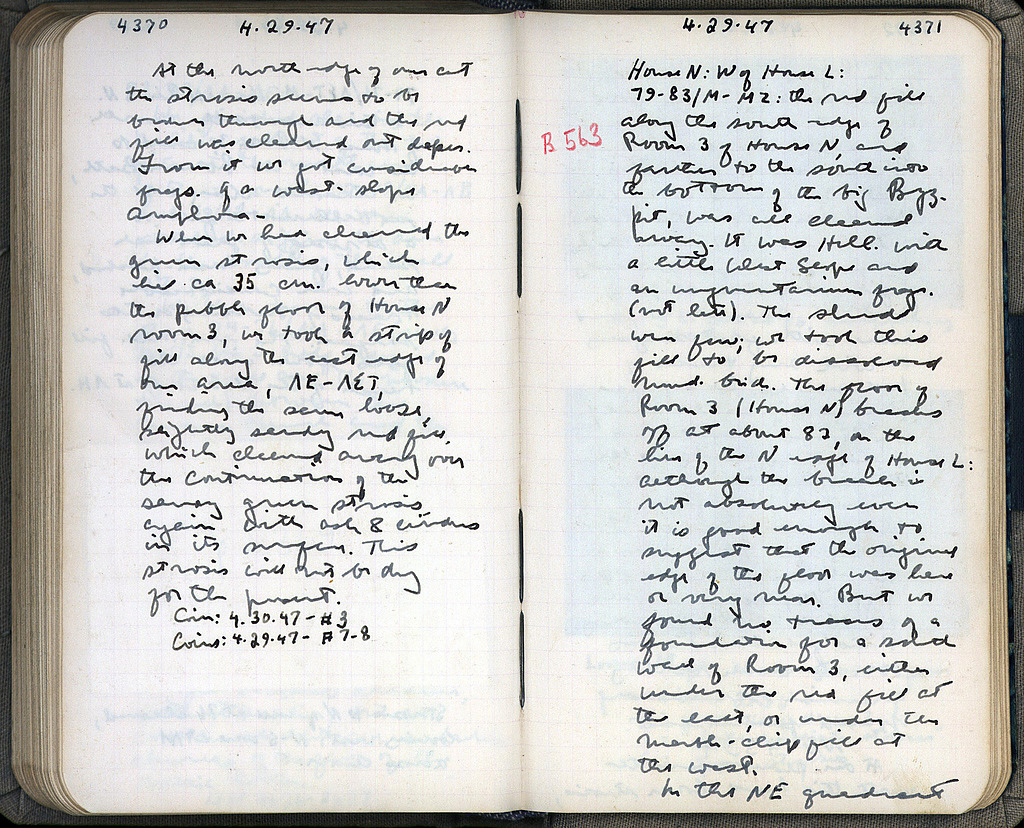 4370 4.29.47
At the north edge of our cut
the strosis seems to be
broken through and the red
fill was cleaned out deeper.
From it we got considerable
frags. of a west slope
amphora-
When we had cleaned the
green strosis, which
lies ca 35 cm. lower than
the pebble floor of House N
room 3, we took a strip of
fill along the east edge of
our area, ΛΕ-ΛΣΤ,
finding the same loose,
slightly sandy red fill,
which cleaned away over
the continuation of the
sandy green strosis,
again with ash & cinders
in its surface. This
strosis will not be dug
for the present.
Coin: 4.30.47-#3
Coins: 4.29.47-#7-8
4.29.47 4371
House N: W of House L:
79-83/M-MZ: the red fill
B 563
along the south edge of
Room 3 of House N and
farther to the south into
the bottom of the big Byz.
pit, was all cleaned
away. It was Hell. with
a little West Slope and
an unguentarium frag.
(not late). The sherds
were few; we took this
fill to be dissolved
mud brick. The floor of
Room 3 (House N) breaks
off at about 83, on the
line of the N edge of House L:
although the break is
not absolutely even
it is good enough to
suggest that the original
edge of the floor was here
or very near. But we
found no traces of a
foundation for a south
wall of Room 3, either
under the red fill at
the east, or under the
marble-chip fill at
the west.
In the NE quadrant